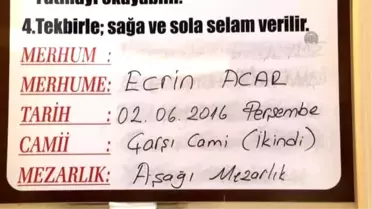 4.Tekbirle; sağa ve sola selam verilir.
MERHUM :
MERHUME: Ecrin ACAR
TARİH : 02.06.2016 Perşembe
CAMİİ : Çarşı Cami (İkindi)
MEZARLIK: Aşağı Mezarlık